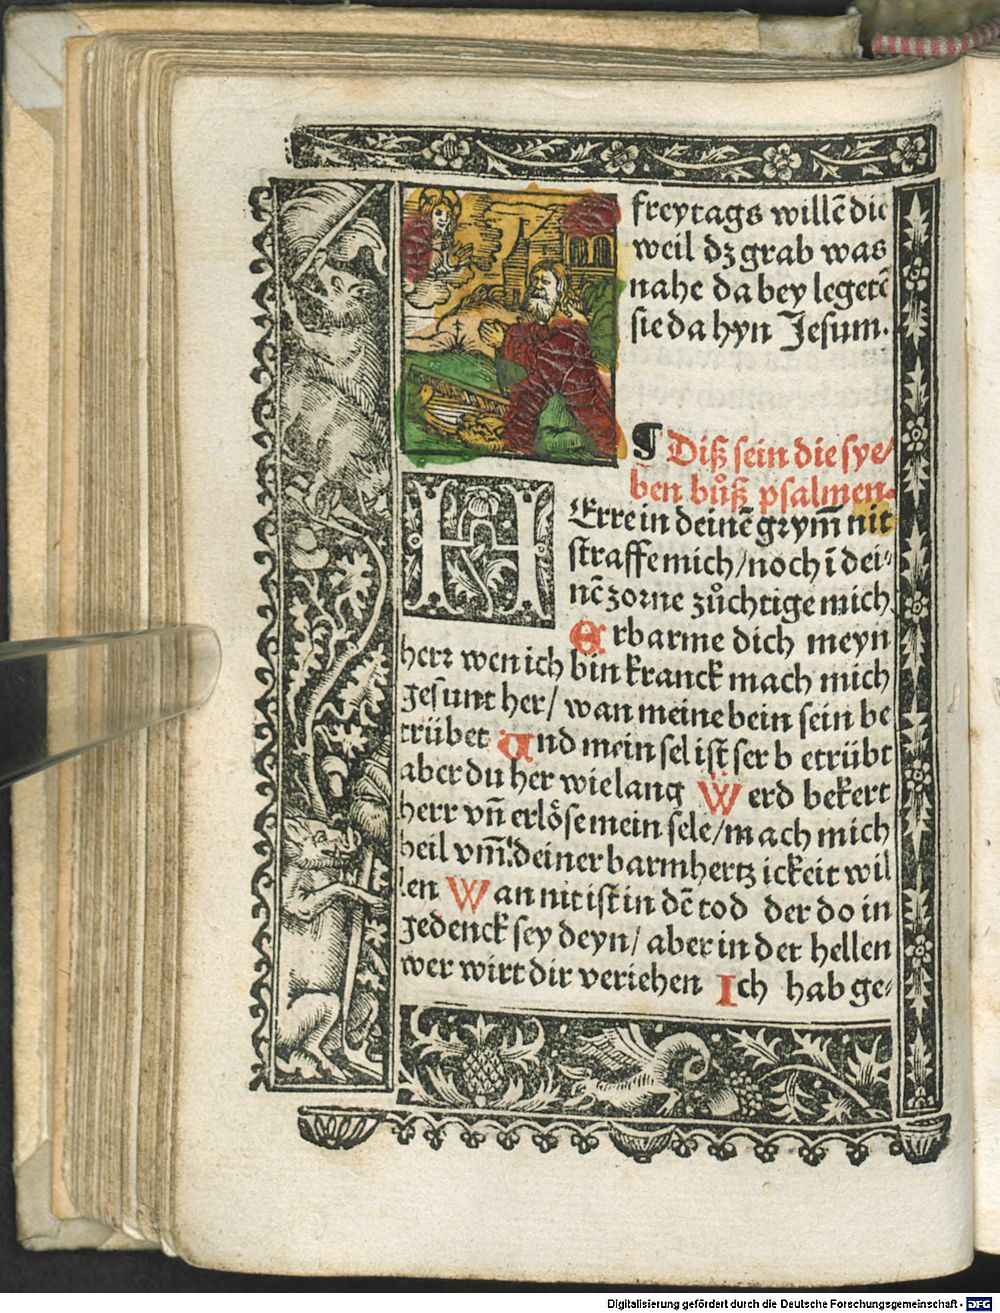 freytags willē die
weil dz grab was
nahe da bey legetē
sie da hyn Jesum.
¶ Diß sein die sye/
ben bůß psalmen.
HErre in deinē grym̄ nit
straffe mich/noch ī dei/
nē zorne zůchtige mich
Erbarme dich meyn
herr wen ich bin kranck mach mich
gesunt her/ wan meine bein sein be
trübet Und mein sel ist ser b etrübt
aber du her wie lang Werd bekert
herr vn̄ erlöse mein sele/mach mich
heil vm̄ deiner barmhertz ickeit wil
len Wan nit ist in dē tod der do in
gedenck sey deyn/ aber in der hellen
wer wirt dir veriehen Ich hab ge/
Digitalisierung gefördert durch die Deutsche Forschungsgemeinschaft - DFG